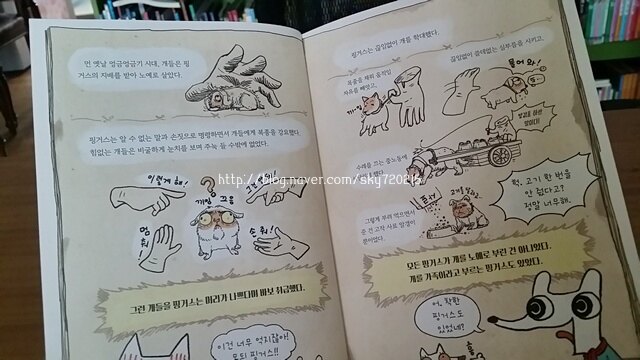 먼 옛날 엉금엉금기 시대, 개들은 핑
거스의 지배를 받아 노예로 살았다.
핑거스는 알 수 없는 말과 손짓으로 명령하면서 개들에게 복종을 강요했다.
힘없는 개들은 비굴하게 눈치를 보며 주눅 들 수밖에 없었다.
이렇게 해!
?
갸잉 끄응
엎드려!
손 줘!
그런 개들을 핑거스는 머리가 나쁘다며 바보 취급했다.
이건 너무 억지잖아!
못된 핑거스!!
핑거스는 끊임없이 개를 학대했다.
목줄을 채워 움직일
자유를 빼앗고,
끊임없이 쓸데없는 심부름을 시키고,
물어 와!
수레를 끄는 중노동에
그렇게 부려 먹으면서
준 건 고작 사료 알갱이
뿐이었다.
헉, 고기 한 번을
안 줬다고?
정말 너무해.
모든 핑거스가 개를 노예로 부린 건 아니었다.
개를 가족이라고 부르는 핑거스도 있었다.
어, 착한
핑거스도
있었네?
http://blog.naver.com/sky72025